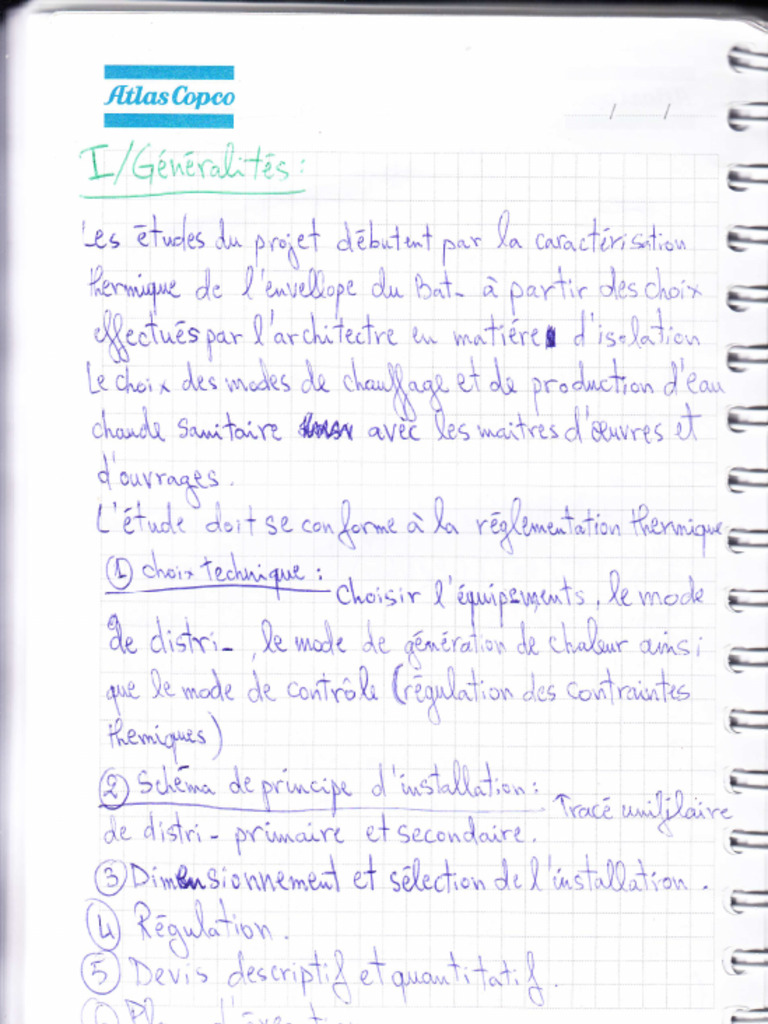 Atlas Copco
/ /
I/Généralités :
Les études du projet débutent par la caractérisation
thermique de l'envellope du Bat- à partir des choix
effectués par l'architectre en matiére d'isolation
Le choix des modes de chauffage et de production d'eau
chaude Sanitaire avec les maitres d'œuvres et
d'ouvrages.
L'étude doit se conforme à la réglementation thermique
① choix technique : Choisir l'équipements, le mode
de distri-, le mode de génération de chaleur ainsi
que le mode de contrôle (régulation des contraintes
themiques)
② Schéma de principe d'installation : Tracé unifilaire
de distri- primaire et secondaire.
③ Dimensionnement et sélection de l'installation.
④ Régulation.
⑤ Devis descriptif et quantitatif.